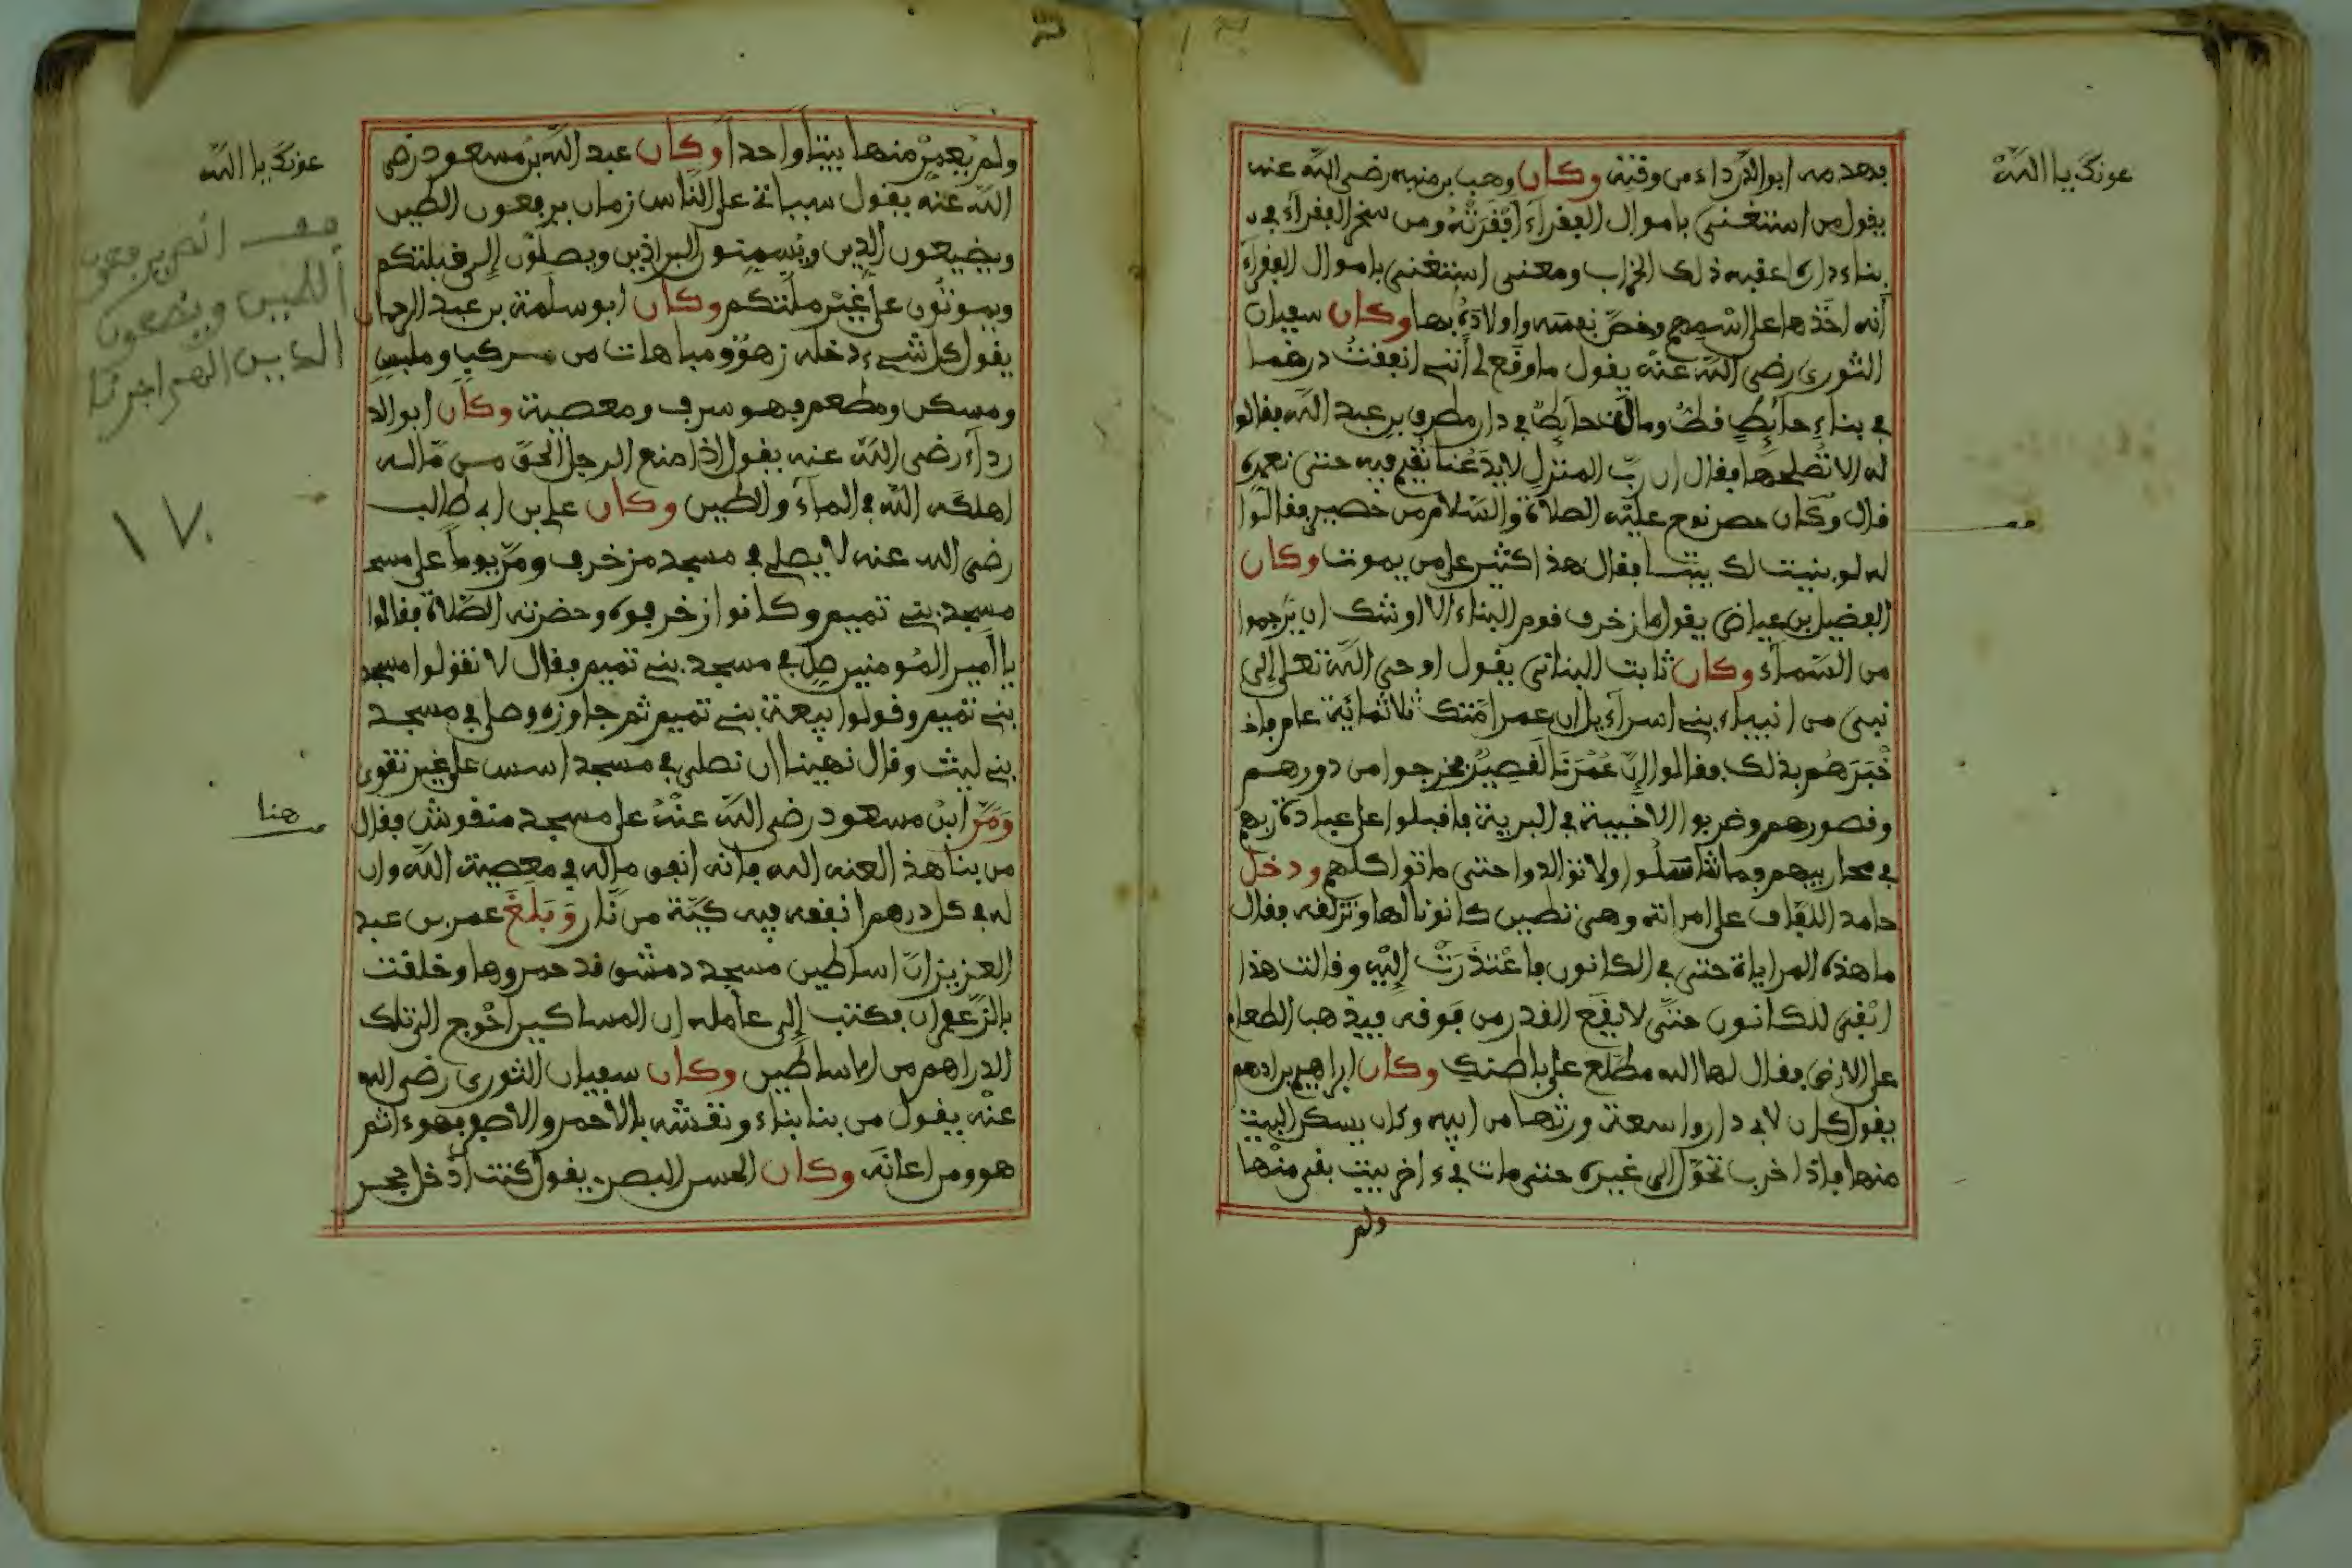 عونك يا الله
فهدمه ابو الدرداء من وقته وكان وهب بن منبه رضي الله عنه
يقول من استغنى باموال الفقراء افقرته ومن سخر الفقراء في
بناء داره اعقبه ذلك الخراب ومعنى استغنى باموال الفقراء
أنه اخذها على اسمهم وخص نفسه واولاده بها وكان سفيان
الثوري رضي الله عنه يقول ما وقع لي أنني انفقت درهما
في بناء حائط قط ومال حائط في دار مطرف بن عبد الله فقالوا
له الا تصلحها فقال ان رب المنزل لا يدعنا نقيم فيه حتى نعمره
قال وكان خص نوح عليه الصلاة والسلام من خصير فقالوا
له لو بنيت لك بيتا فقال هذا كثير على من يموت وكان
الفضيل بن عياض يقول ما زخرف قوم البناء الا اوشك ان يرجموا
من السماء وكان ثابت البناني يقول اوحى الله تعلى إلى
نبي من انبياء بني اسراءيل ان عمر امتك ثلاثمائة عام فاخ
خبرهم بذلك فقالوا إن عمرنا لقصير فخرجوا من دورهم
وقصورهم وضربوا الاخبية في البرية فاقبلوا على عبادة ربهم
في محاريبهم فما تناسلوا ولا توالدوا حتى ماتوا كلهم ودخل
حامد اللفاف على امراته وهي تطين كانونا لها وتزلفه فقال
ما هذه المراياة حتى في الكانون فاعتذرت إليه وقالت هذا
اتقى للكانون حتى لا يقع القدر من فوقه فيذهب الطعام
على الارض فقال لها الله مطلع على باطنك وكان ابراهيم بن ادهم
يقول كان لابي دار واسعة ورثها من ابيه وكان يسكن البيت
منها فإذا خرب تحول الى غيره حتى مات في ءاخر بيت بقي منها
ولم
عونك يا الله
ولم يعمر منها بيتا واحدا وكان عبد الله بن مسعود رضي
الله عنه يقول سياتي على الناس زمان يرفعون الطين
ويضيعون الدين ويسمنون البراذين ويصلون إلى قبلتكم
ويموتون على غير ملتكم وكان ابو سلمة بن عبد الرحمان
يقول كل شيء دخله زهو ومباهات من مركب وملبس
ومسكن ومطعم فهو سرف ومعصية وكان ابو الد
رداء رضي الله عنه يقول إذا منع الرجل الحق من ماله
اهلكه الله في الماء والطين وكان علي بن ابي طالب
رضي الله عنه لا يصلي في مسجد مزخرف ومر يوما على مسجد
مسجد بني تميم وكانوا زخرفوه وحضرته الصلاة فقالوا
يا امير المومنين صل في مسجد بني تميم فقال لا تقولوا مسجد
بني تميم وقولوا بيعة بني تميم ثم جاوزه وصلى في مسجد
بني ليث وقال نهينا ان نصلي في مسجد اسس على غير تقوى
ومر ابن مسعود رضي الله عنه على مسجد منقوش فقال
من بنا هذا لعنه الله فانه انفق ماله في معصية الله وان
له في كل درهم انفقه فيه كية من نار وبلغ عمر بن عبد
العزيز ان اساطين مسجد دمشق قد حمروها وخلقت
بالزعفران فكتب إلى عامله ان المساكين أحوج الى تلك
الدراهم من الاساطين وكان سفيان الثوري رضي الله
عنه يقول من بنا بناء ونقشه بالأحمر والأصفر فهو ءاثم
هو ومن اعانه وكان الحسن البصري يقول كنت أدخل حجر
قف انهم يرفعون
الطين ويضعون
الدين اللهم اجرنا
١٧٠
هنا